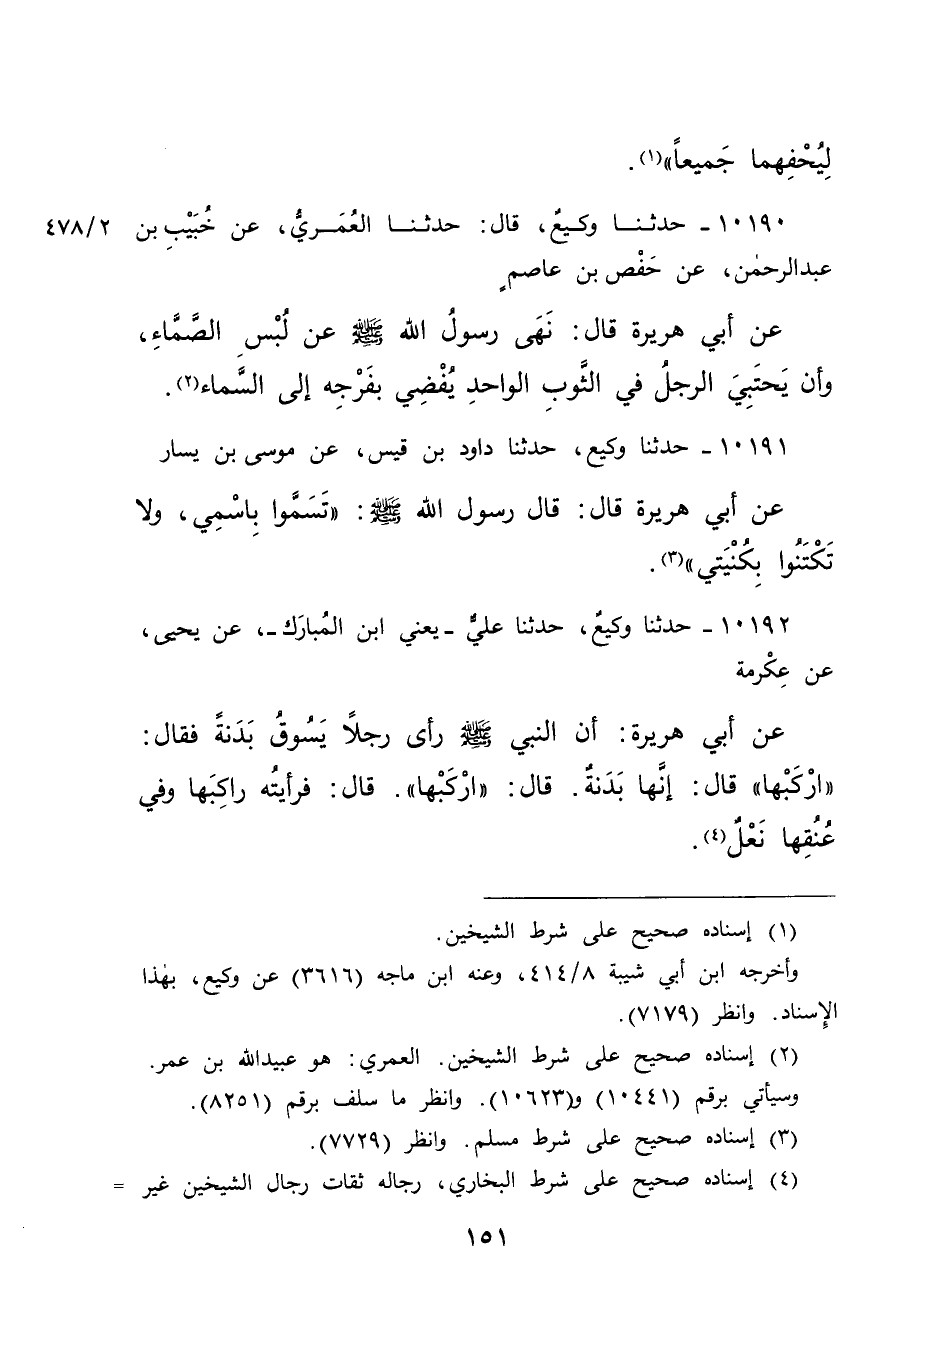 لِيُحْفِهما جَميعاً»(١).
١٠١٩٠ـ حدثنا وكيعٌ، قال: حدثنا العُمَريُّ، عن خُبَيْبِ بن ٤٧٨/٢
عبدالرحمٰن، عن حَفْص بن عاصمٍ
عن أبي هريرة قال: نَهَى رسولُ الله ﷺ عن لُبْسِ الصَّمَّاءِ،
وأن يَحتَبِيَ الرجلُ في الثَّوبِ الواحدِ يُفْضِي بفَرْجِه إلى السَّماء(٢).
١٠١٩١ـ حدثنا وكيع، حدثنا داود بن قيس، عن موسى بن يسار
عن أبي هريرة قال: قال رسول الله ﷺ: «تَسَمَّوا بِاسْمِي، ولا
تَكْتَنُوا بِكُنْيَتي»(٣).
١٠١٩٢ـ حدثنا وكيعٌ، حدثنا عليٌّ ـ يعني ابن المُبارَك ـ، عن يحيى،
عن عِكْرمة
عن أبي هريرة: أن النبي ﷺ رأى رجلاً يَسُوقُ بَدَنةً فقال:
«ارْكَبْها» قال: إنَّها بَدَنةٌ. قال: «ارْكَبْها». قال: فرأيتُه راكِبَها وفي
عُنُقِها نَعْلٌ(٤).
(١) إسناده صحيح على شرط الشيخين.
وأخرجه ابن أبي شيبة ٤١٤/٨، وعنه ابن ماجه (٣٦١٦) عن وكيع، بهٰذا
الإِسناد. وانظر (٧١٧٩).
(٢) إسناده صحيح على شرط الشيخين. العمري: هو عبيدالله بن عمر.
وسيأتي برقم (١٠٤٤١) و(١٠٦٢٣). وانظر ما سلف برقم (٨٢٥١).
(٣) إسناده صحيح على شرط مسلم. وانظر (٧٧٢٩).
(٤) إسناده صحيح على شرط البخاري، رجاله ثقات رجال الشيخين غير =
١٥١